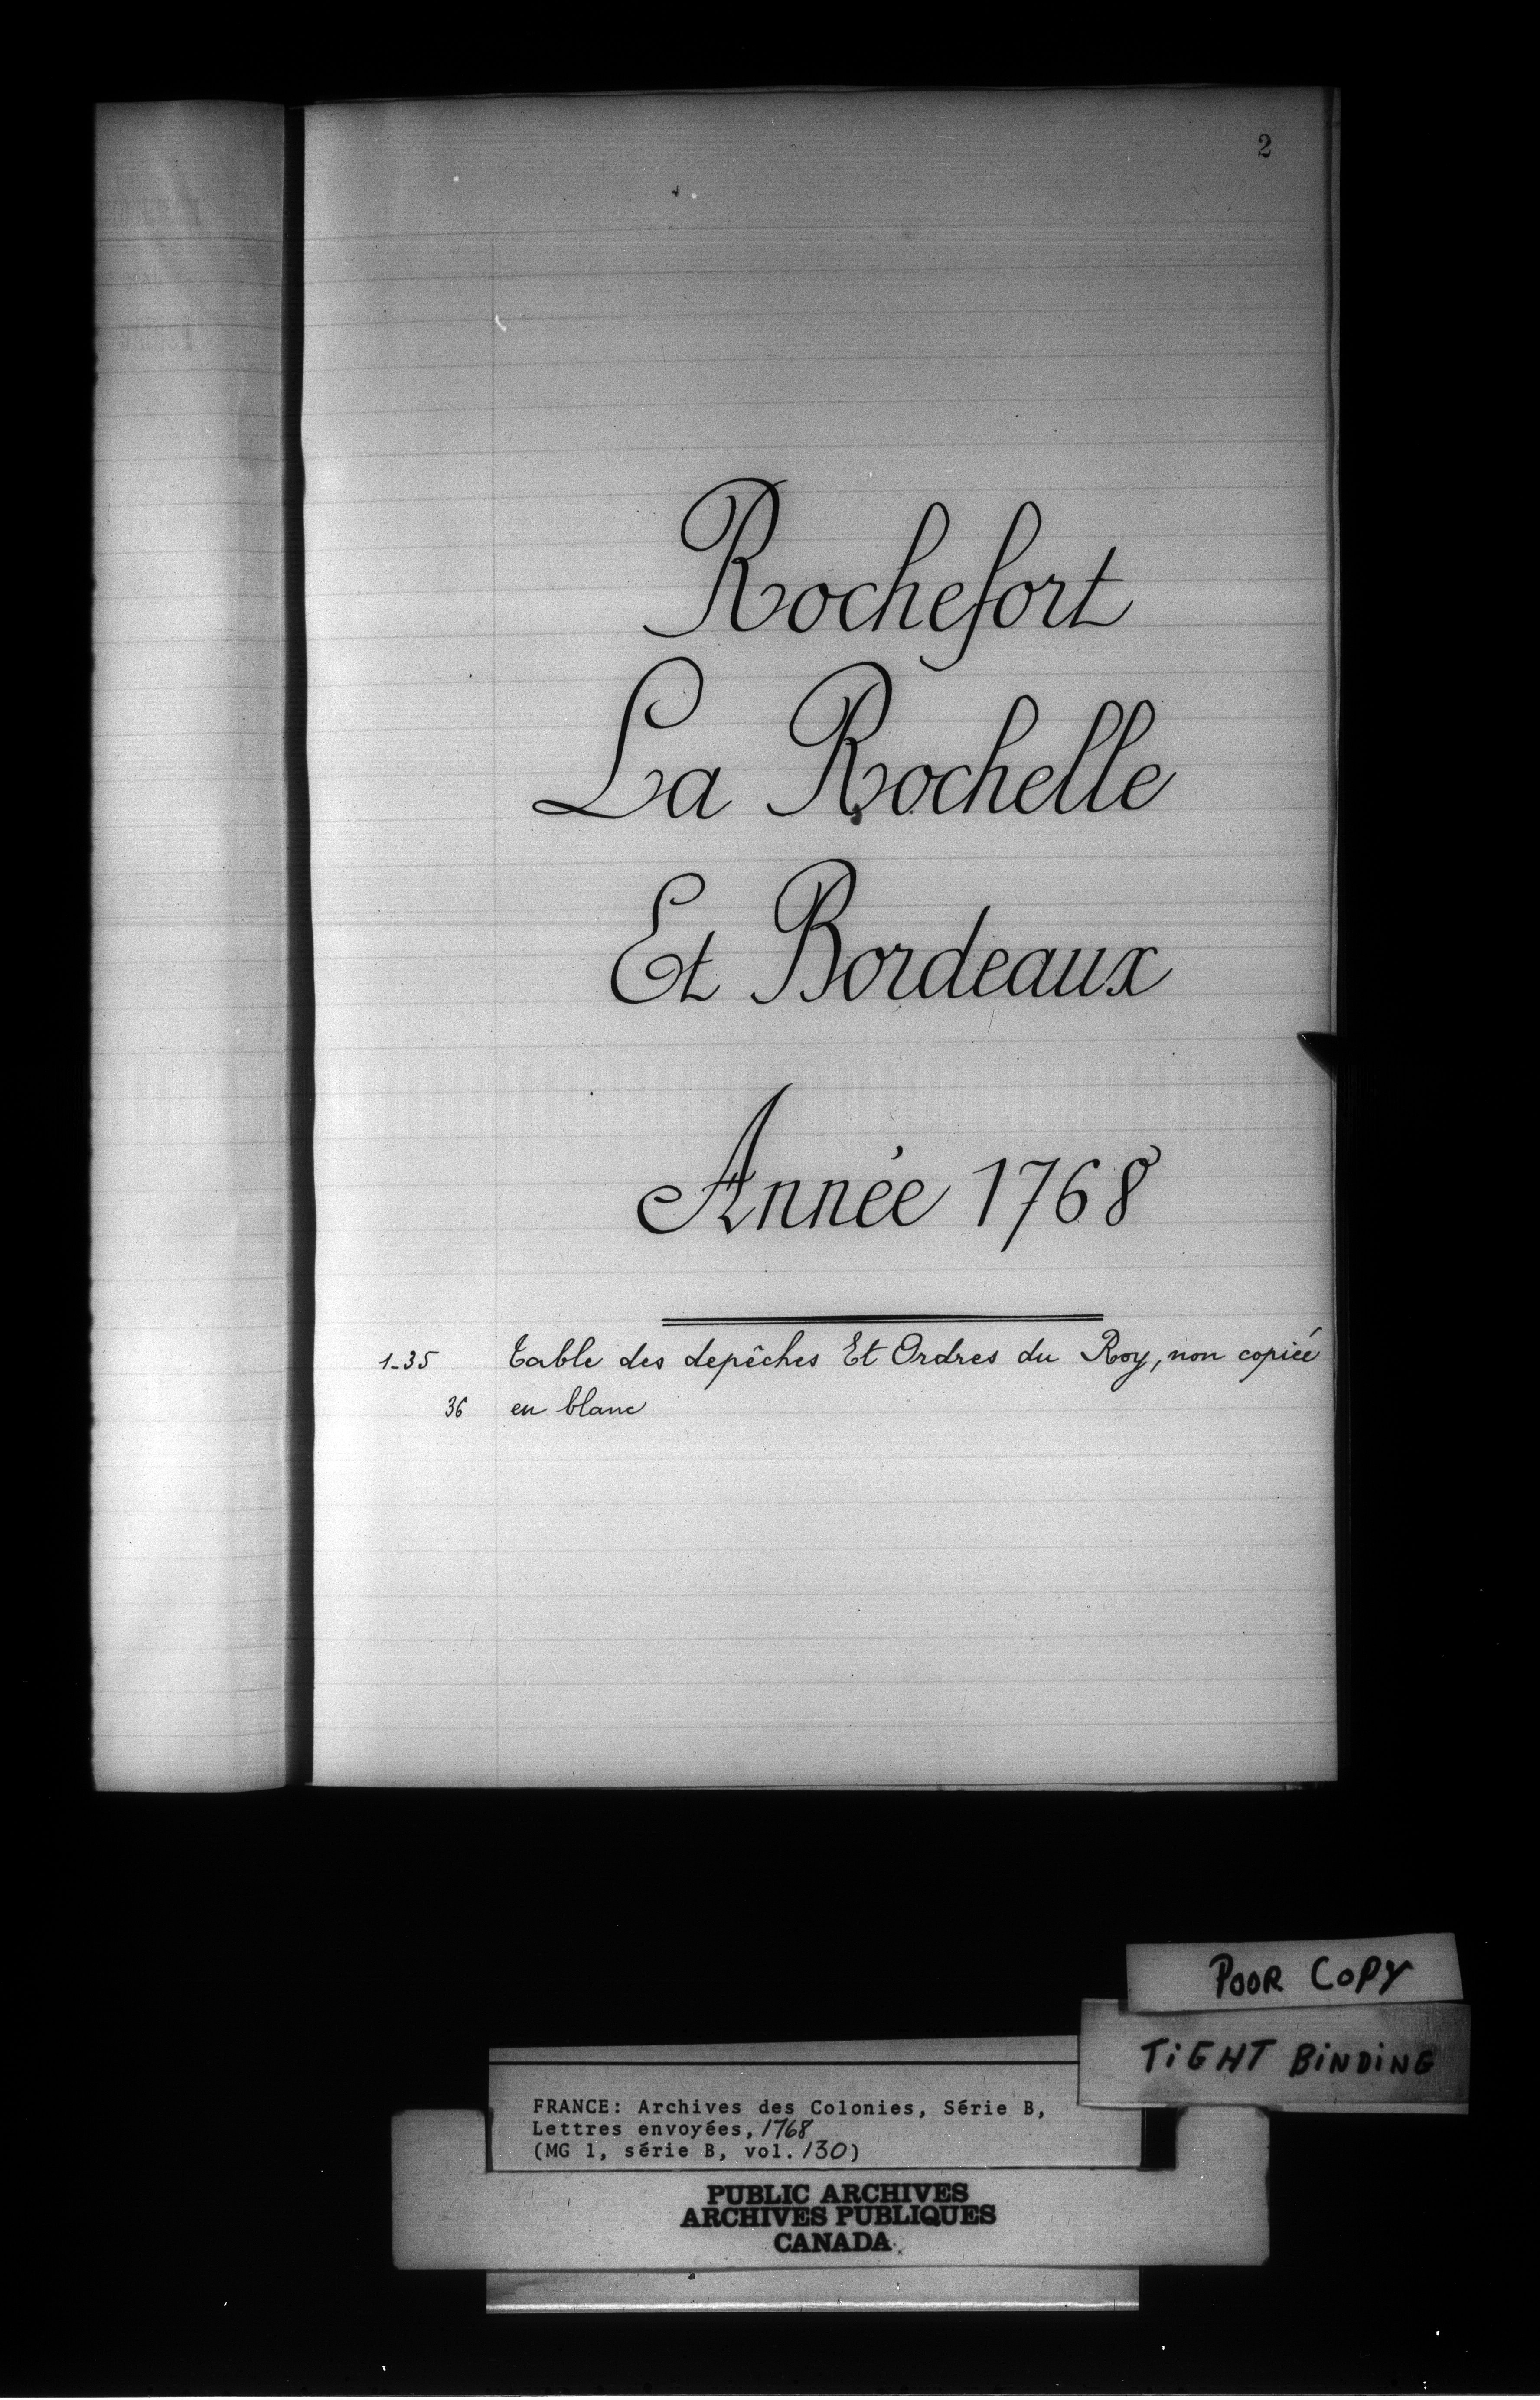 2
Rochefort
La Rochelle
Et Bordeaux
Année 1768
1-35 Table des depêches Et Ordres du Roy, non copiée
36 en blanc
POOR COPY
TIGHT BINDING
FRANCE: Archives des Colonies, Série B,
Lettres envoyées, 1768
(MG 1, série B, vol. 130)
PUBLIC ARCHIVES
ARCHIVES PUBLIQUES
CANADA